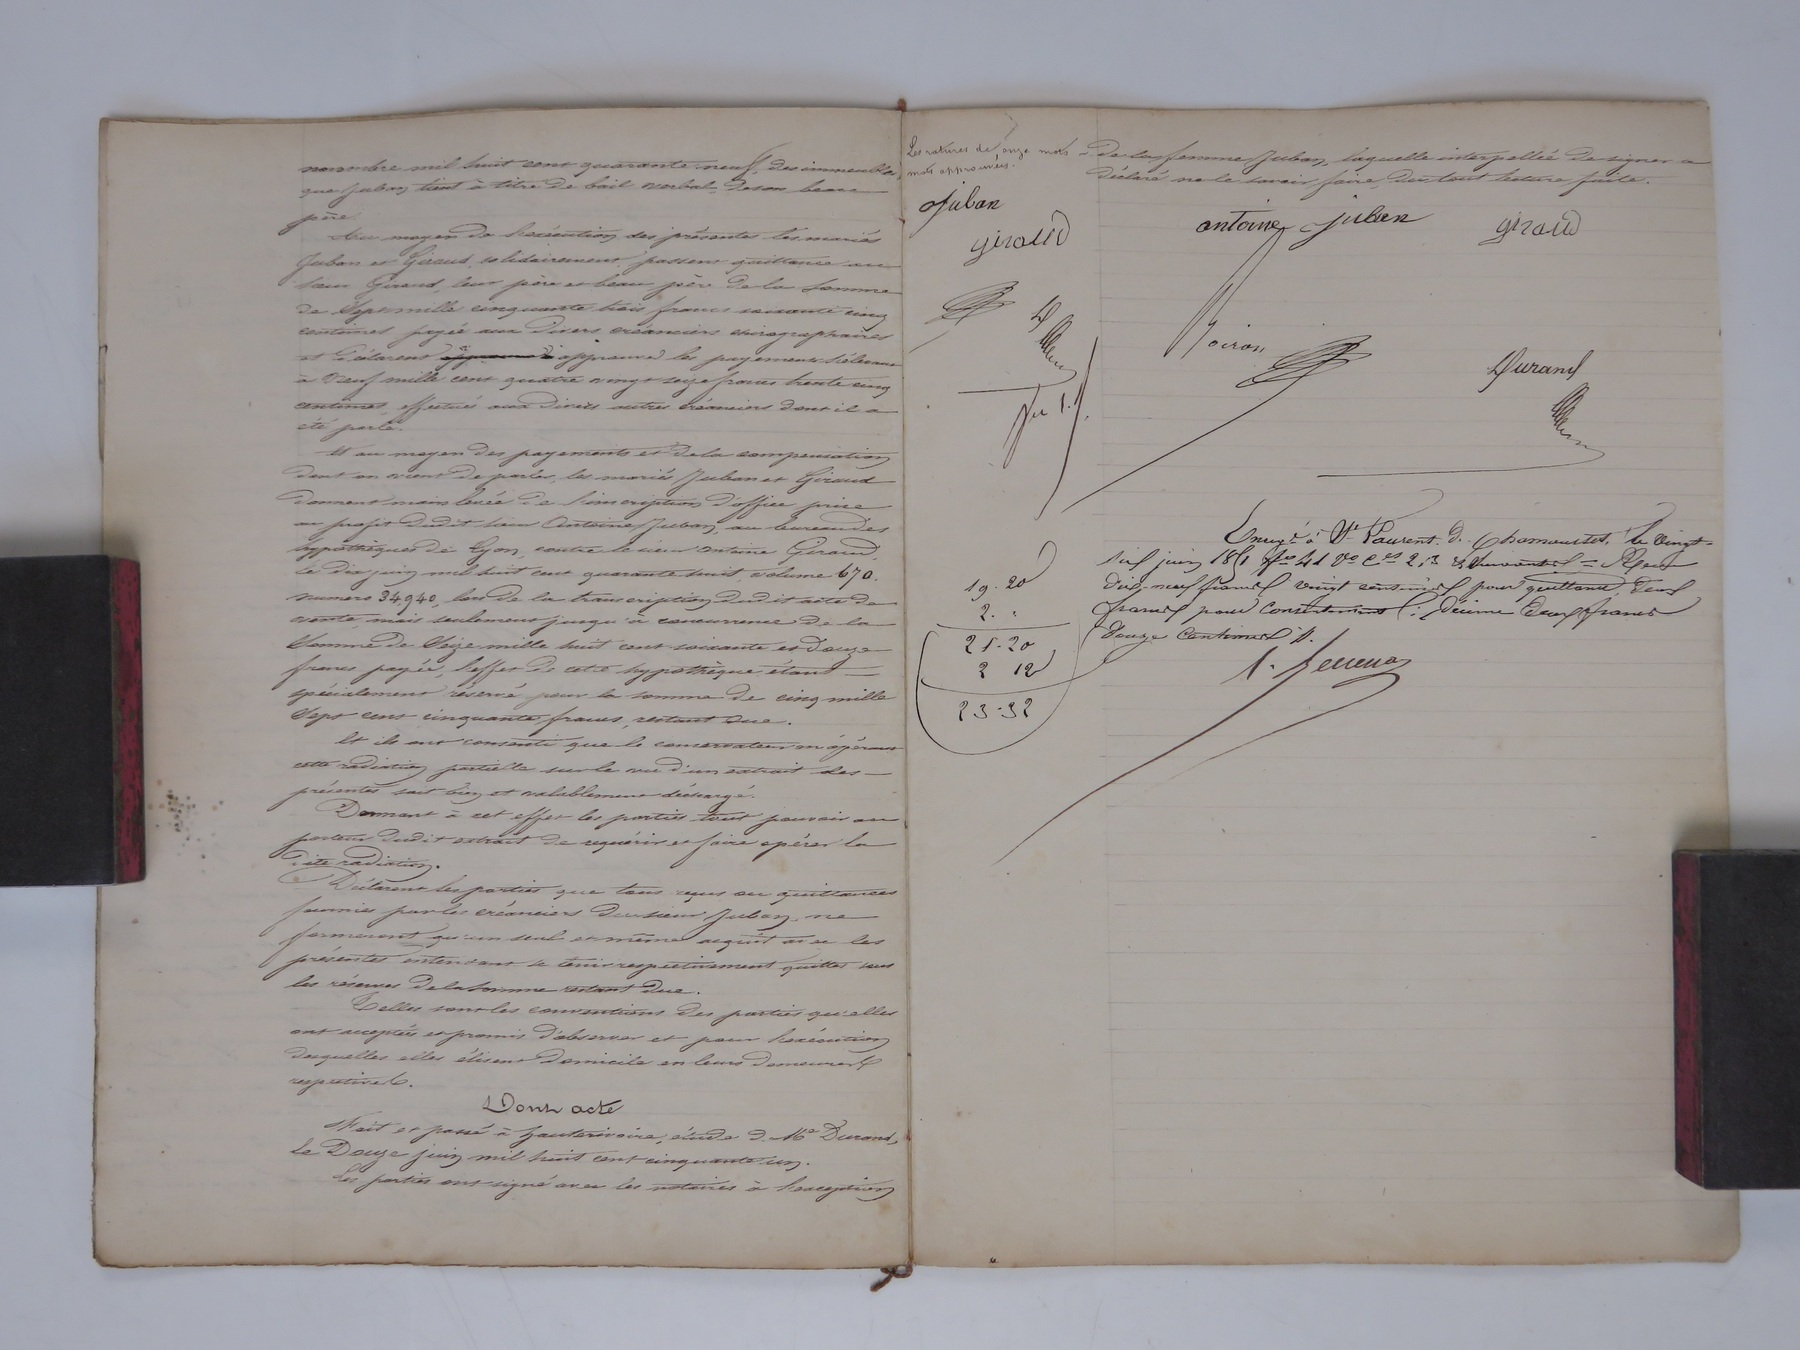 novembre mil huit cent quarante neuf, des immeubles
que Juban tient à titre de bail verbal de son beau
père.
Au moyen de l'exécution des présentes les mariés
Juban et Giraud, solidairement, passent quittance au
sieur Giraud, leur père et beau père de la somme
de sept mille cinquante trois francs soixante cinq
centimes payée aux divers créanciers chirographaires
et déclarent approuver les payements s'élevant
à neuf mille cent quatre vingt seize francs trente cinq
centimes, effectués aux divers autres créanciers dont il a
été parlé.
Et au moyen des payements et de la compensation
dont on vient de parler, les mariés Juban et Giraud
donnent main levée de l'inscription d'office prise
au profit dudit sieur Antoine Juban, au bureau des
hypothèques de Lyon, contre le sieur Antoine Giraud,
le dix juin mil huit cent quarante huit, volume 670.
numéro 34940, lors de la transcription dudit acte de
vente, mais seulement jusqu'à concurrence de la
somme de seize mille huit cent soixante et douze
francs payée, l'effet de cette hypothèque étant
spécialement réservé pour la somme de cinq mille
sept cent cinquante francs, restant due.
Et ils ont consenti que le conservateur en opérant
cette radiation partielle sur le vu d'un extrait des
présentes soit bien et valablement déchargé.
Donnant à cet effet les parties tout pouvoir au
porteur dudit extrait de requérir et faire opérer la
dite radiation.
Déclarent les parties que tous reçus ou quittances
fournies par les créanciers du sieur Juban, ne
formeront qu'un seul et même acquit avec les
présentes entendant se tenir respectivement quittes sous
les réserves de la somme restant due.
Telles sont les conventions des parties qu'elles
ont acceptées et promis d'observer et pour l'exécution
desquelles elles élisent domicile en leurs demeures
respectives.
Dont acte
Fait et passé à hauterivoire, étude d. Me Durand,
le Douze juin mil huit cent cinquante un.
Les parties ont signé avec les notaires à l'exception
Les ratures de onze mots
mots approuvées.
Juban
giraud
D
de la femme Juban, laquelle interpellée de signer a
déclaré ne le savoir faire, du tout lecture faite.
antoine juban giraud
Noiron
Durand
Enregé à St Laurent d. Chamousset, le vingt-
six juin 1851 fo 41 Vo Ces 2, 3 & suivantes = Reçu
dix-neuf francs vingt centimes pour quittance, deux
francs pour consentement ; décime deux francs
douze centimes ./.
19. 20
2. "
21. 20
2 12
23. 32